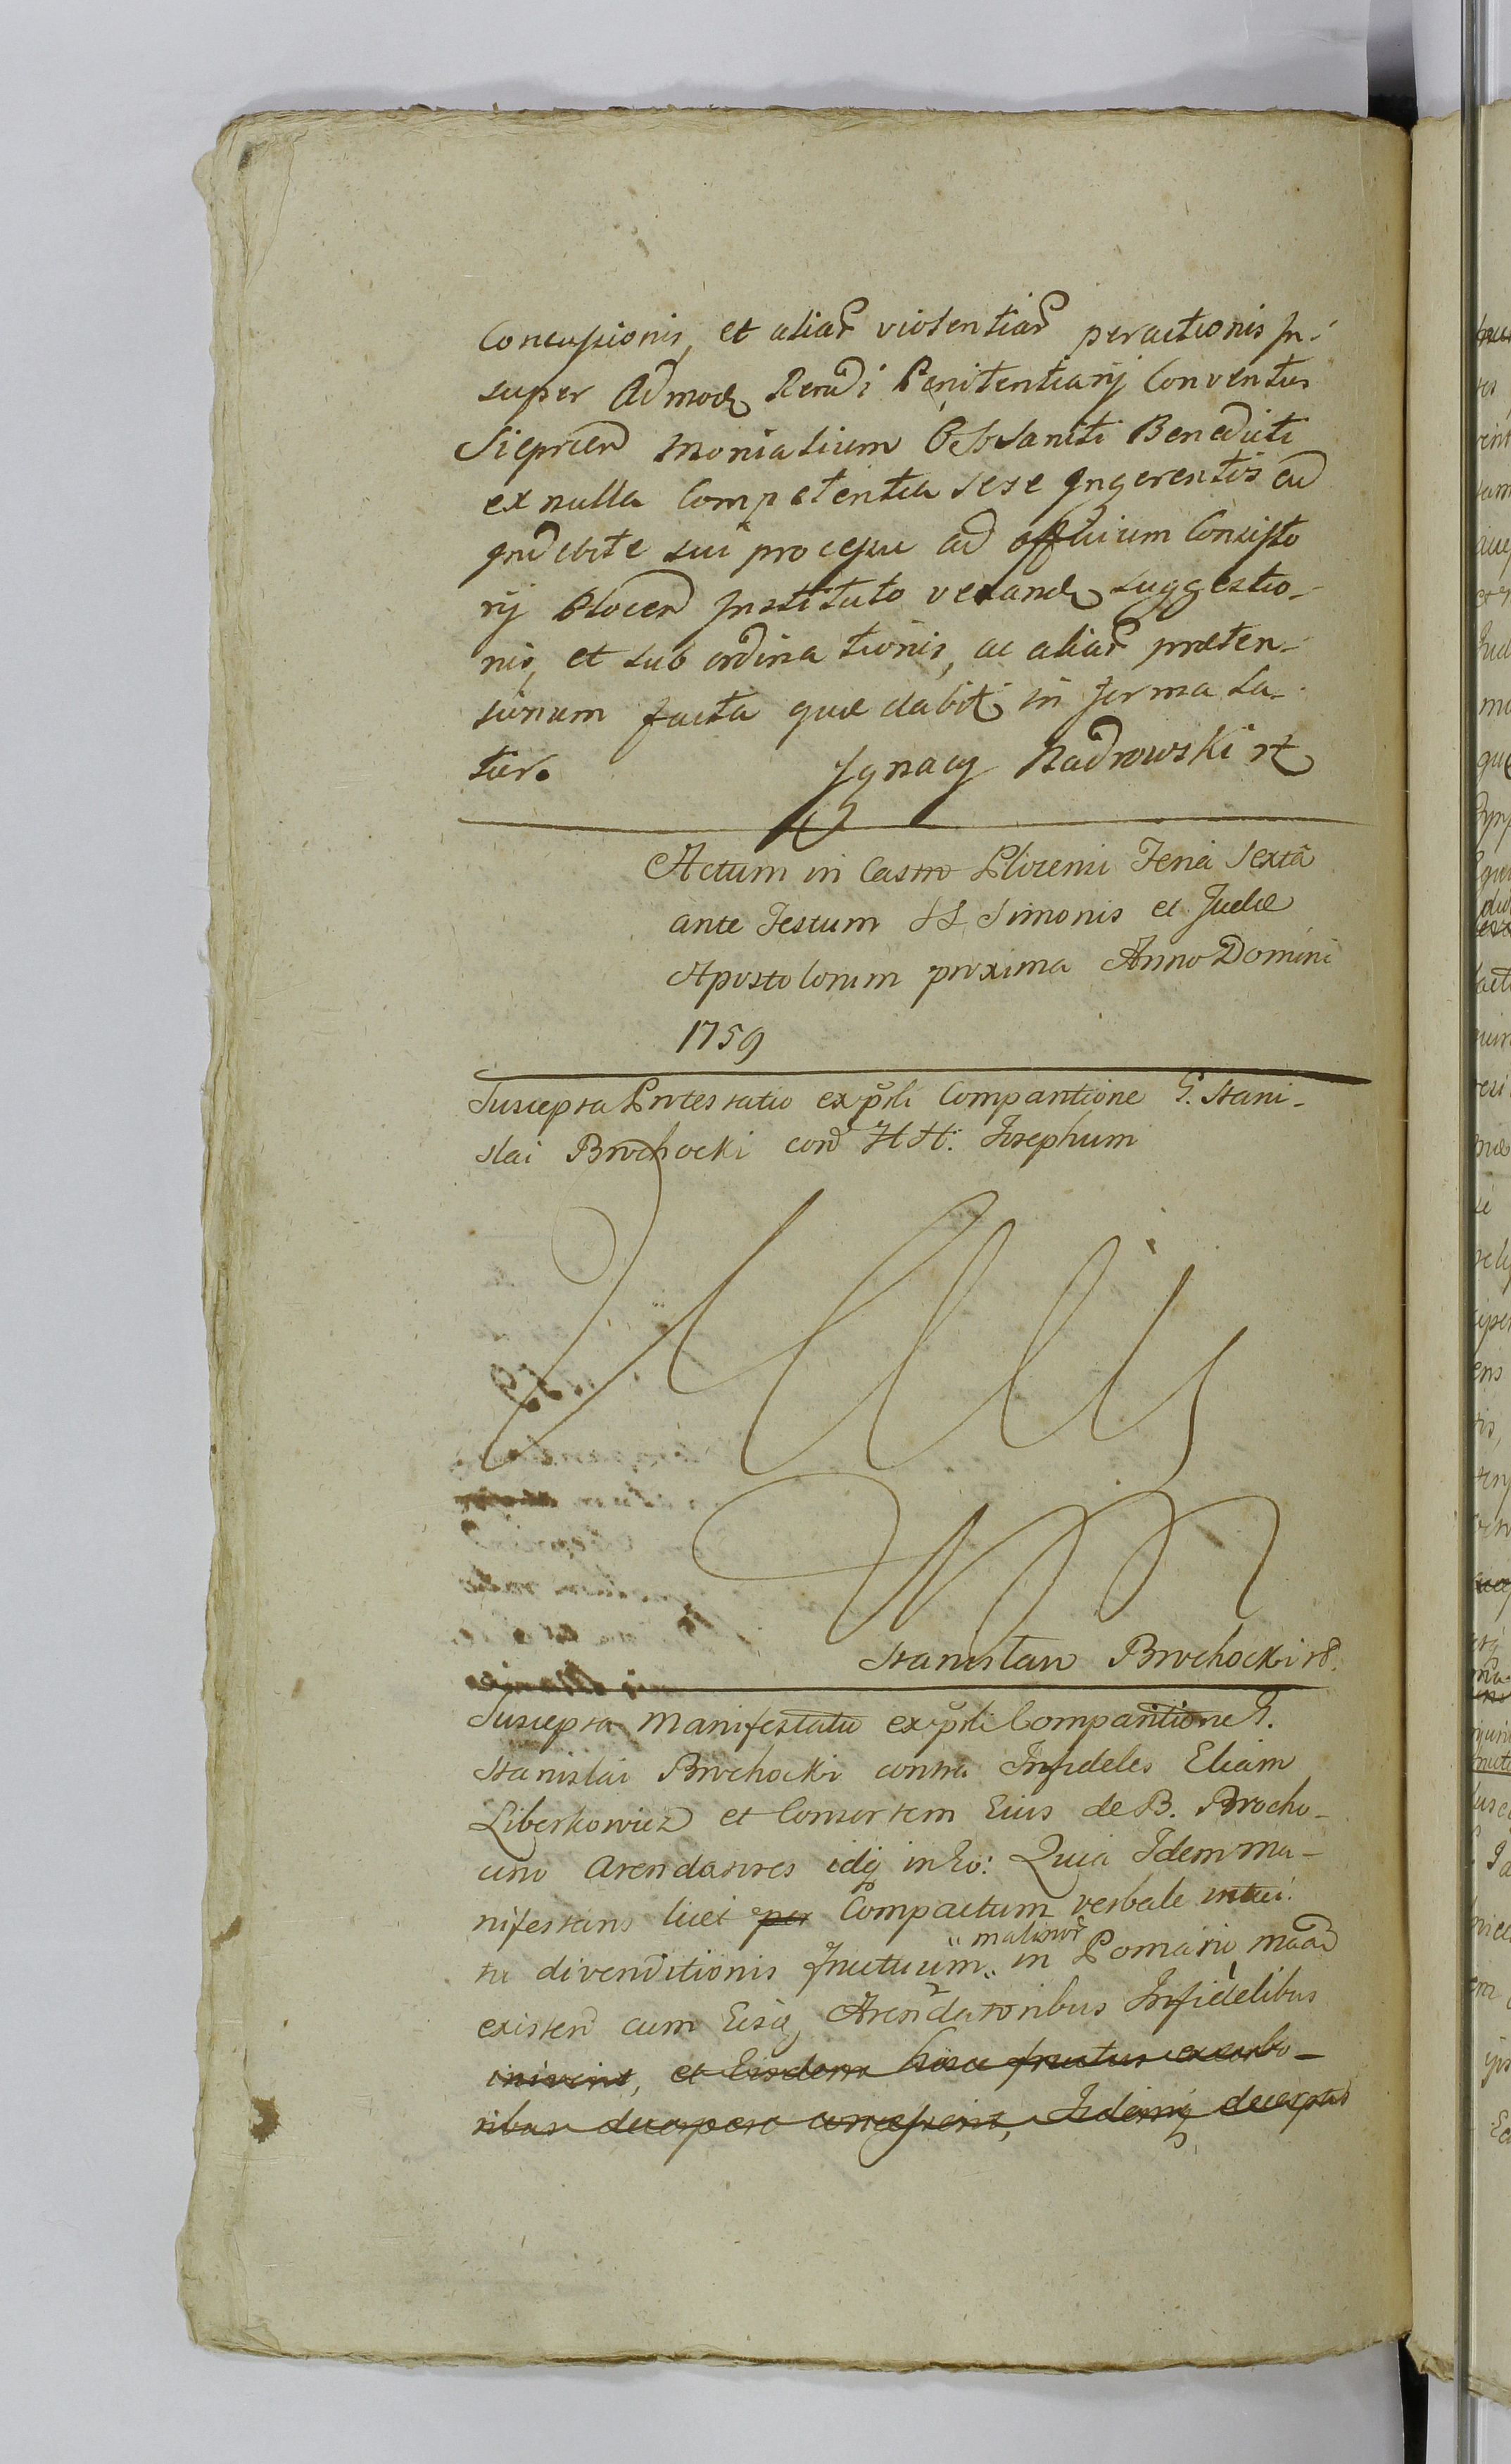 Concussionis, et aliar violentiar peractionis In-
super Admod Rendi Penitentiarij Conventus
Sieprcen monialium O. Sti Sancti Benedicti
ex nulla Competentia sese Ingerentis ead
Indebite sui processu ad officium Consisto
rij Plocen Instituto vexand suggestio-
nis, et subordinationis, ac aliar praeten-
sionum facta quae dabit in forma La-
tior.
Ignacy Nadrowski
Actum in Castro Plocensi Feria Sexta
ante Festum SS Simonis et Judae
Apostolorum proxima Anno Domini
1759
Suscepta Protestatio ex psli Comparitione G. Stani-
slai Brochocki con H H: Josephum
Stanisław Brochocki
Suscepta Manifestatio ex psli Comparitione G.
Stanislai Brochocki contra Infideles Eliam
Liberkowicz et Consortem Eius de B. Brocho-
cino Arendatores idq in Eo: Quia Idem Ma-
nifestans licet per Compactum verbale intui-
tu divenditionis fructuum malinor in Pomario
existen cum Eisq Arendatoribus Infidelibus
inivint, et Eisdem hosce fructus ex arbo-
ribus decerpere concesserint, Iidemq decerptis